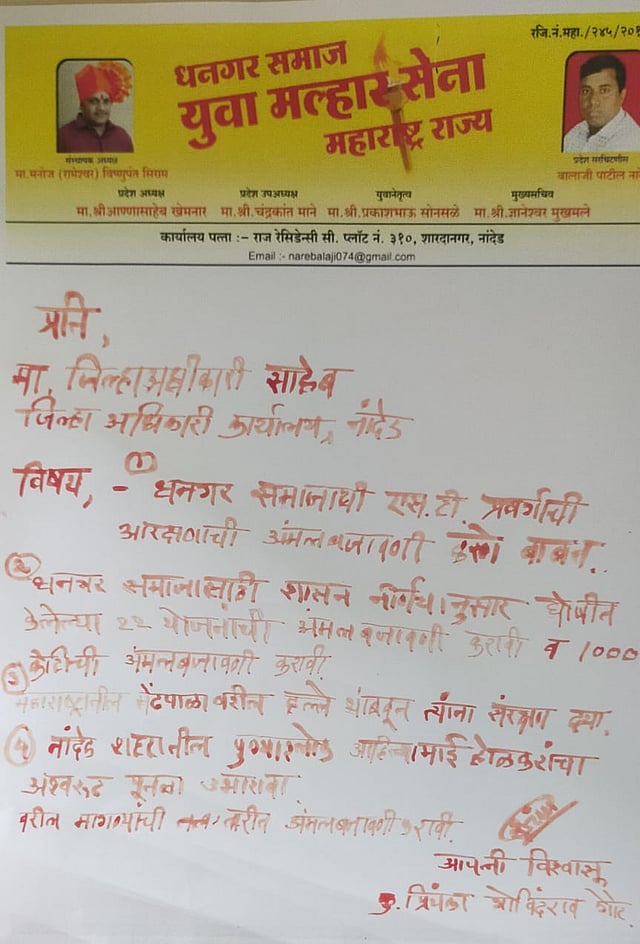 रजि.नं.महा./२४५/२०१
धनगर समाज
युवा मल्हार सेना
महाराष्ट्र राज्य
संस्थापक अध्यक्ष
मा.मनोज (रामेश्वर) विष्णुपंत सिराम
प्रदेश सरचिटणीस
बालाजी पाटील नारे
प्रदेश अध्यक्ष प्रदेश उपअध्यक्ष युवानेतृत्व मुख्यसचिव
मा.श्रीआण्णासाहेब खेमनार मा.श्री.चंद्रकांत माने मा.श्री.प्रकाशभाऊ सोनसळे मा.श्री.ज्ञानेश्वर मुखमले
कार्यालय पत्ता :– राज रेसिडेन्सी सी. प्लॉट नं. ३१०, शारदानगर, नांदेड
Email :- narebalaji074@gmail.com
प्रति,
मा. जिल्हाअधीकारी साहेब
जिल्हा अधिकारी कार्यालय, नांदेड
विषय, - (१) धनगर समाजाची एस.टी प्रवर्गाची
आरक्षणाची अंमलबजावणी बाबत.
(२) धनगर समाजासाठी शासन निर्णयानुसार घोषीत
केलेल्या २२ योजनांची अंमलबजावणी करावी व १०००
कोटींची अंमलबजावणी करावी
(3) महाराष्ट्रातील मेंढपाळावरील हल्ले थांबवून त्यांना संरक्षण द्या.
(४) नांदेड शहरातील पुण्यश्लोक अहिल्यामाई होळकरांचा
अश्वरूढ पूतळा उभारावा
वरील मागण्यांची अंमलबजावणी करावी.
आपली विश्वासू
कु. प्रियंका गोविंदराव